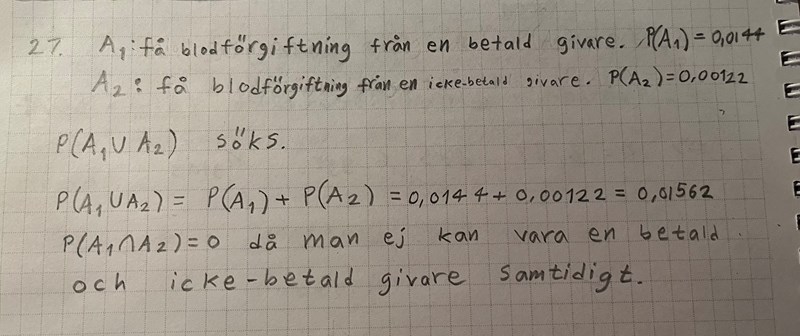 27. A₁: få blodförgiftning från en betald givare. P(A₁) = 0,0144
A₂: få blodförgiftning från en icke-betald givare. P(A₂)=0,00122
P(A₁ ∪ A₂) söks.
P(A₁ ∪ A₂) = P(A₁) + P(A₂) = 0,0144 + 0,00122 = 0,01562
P(A₁ ∩ A₂) = 0 då man ej kan vara en betald
och icke-betald givare samtidigt.